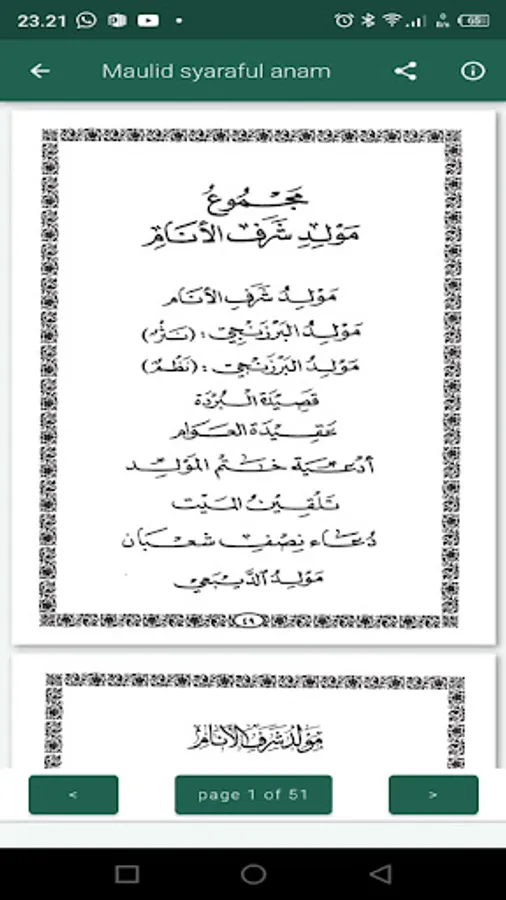 23.21
65
Maulid syaraful anam
مَجْمُوعُ
مَوْلِدِ شَرَفِ الْأَنَامِ
مَوْلِدُ شَرَفِ الْأَنَامِ
مَوْلِدُ الْبَرْزَنْجِي : (نَثْرٌ)
مَوْلِدُ الْبَرْزَنْجِي : (نَظْمٌ)
قَصِيدَةُ الْبُرْدَةِ
عَقِيدَةُ الْعَوَامِ
أَدْعِيَةُ خَتْمُ الْمَوْلِدِ
تَلْقِيْنُ الْمَيِّتِ
دُعَاءُ نِصْفِ شَعْبَانَ
مَوْلِدُ الدِّيبَعِي
٤٩
مَوْلِدُ شَرَفِ الْأَنَامِ
<
page 1 of 51
>